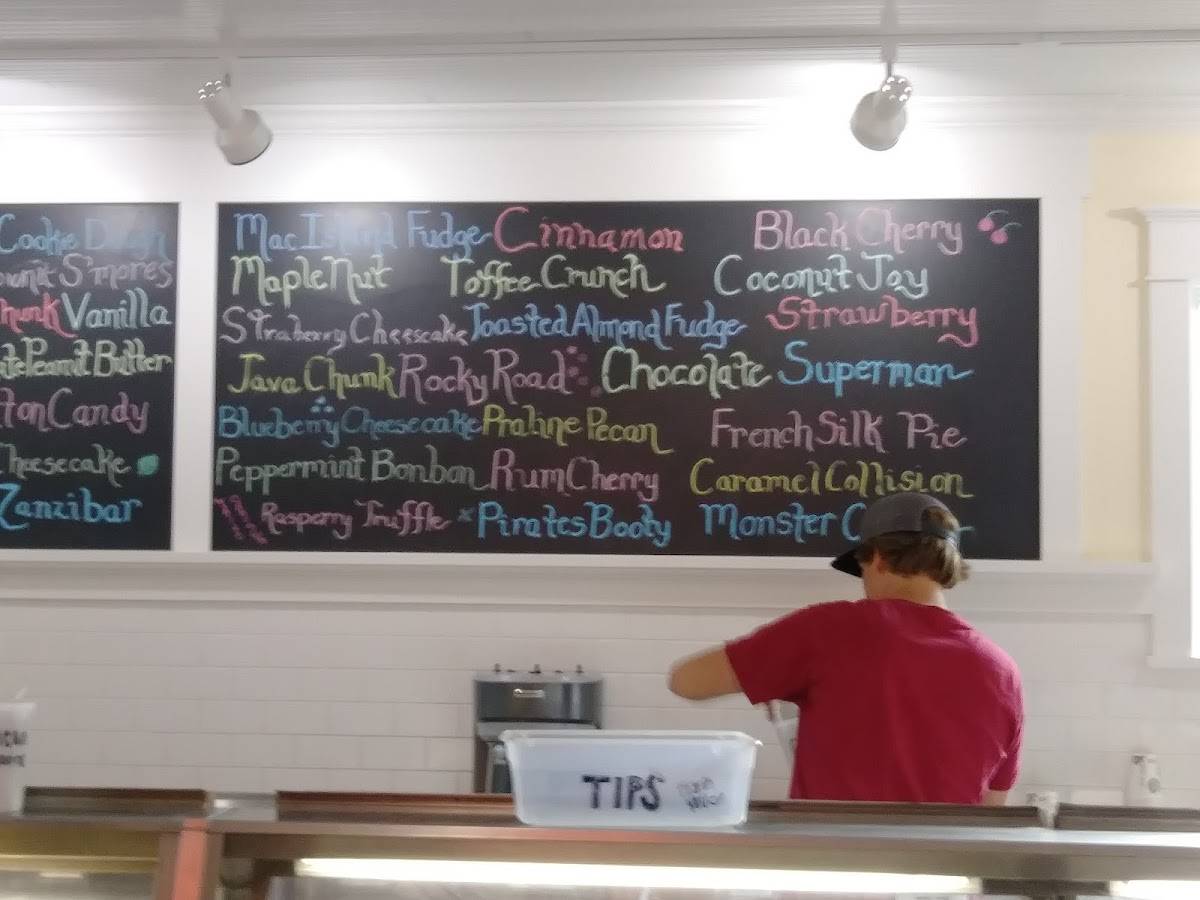 Cookie Dough
S'mores
Vanilla
Peanut Butter
Candy
Cheesecake
Zanzibar
Mac Island Fudge Cinnamon Black Cherry
Maple Nut Toffee Crunch Coconut Joy
Straberry Cheescake Toasted Almond Fudge Strawberry
Java Chunk Rocky Road Chocolate Superman
Blueberry Cheesecake Praline Pecan French Silk Pie
Peppermint Bonbon Rum Cherry Caramel Collision
Rasperry Truffle Pirates Booty Monster
TIPS